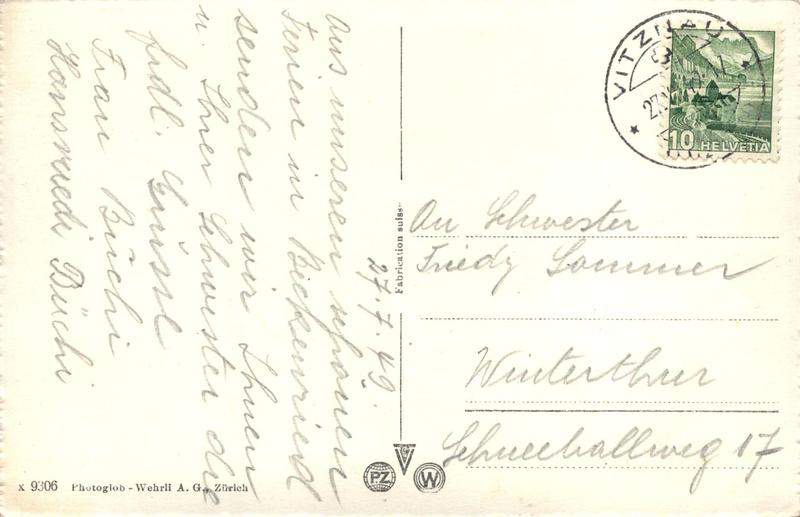 27.7.49.
Aus unseren schönen
Ferien in Beckenried
senden wir Ihnen
u. Ihrer Schwester die
frdl. Grüsse
Frau Büchi
Hansruedi Büchi
VITZNAU
10 HELVETIA
An Schwester
Friedy Sommer
Winterthur
Schneeballweg 17
Fabrication suisse
PZ W
X 9306 Photoglob - Wehrli A. G., Zürich